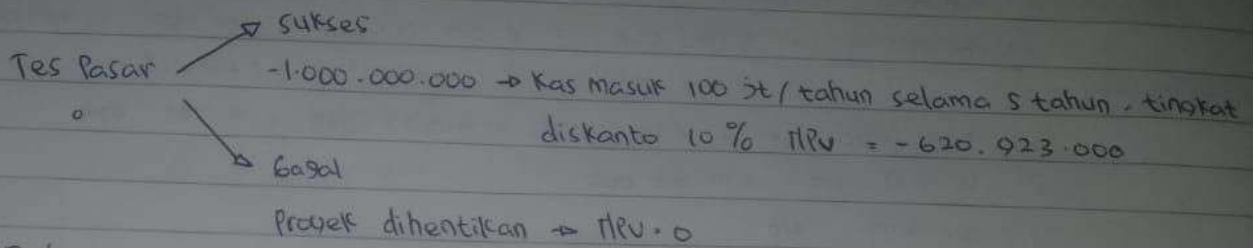 sukses
Tes Pasar
-1.000.000.000 → Kas masuk 100 jt / tahun selama 5 tahun, tingkat
0
diskanto 10% NPV = -620.923.000
Gagal
Proyek dihentikan → NPV.0